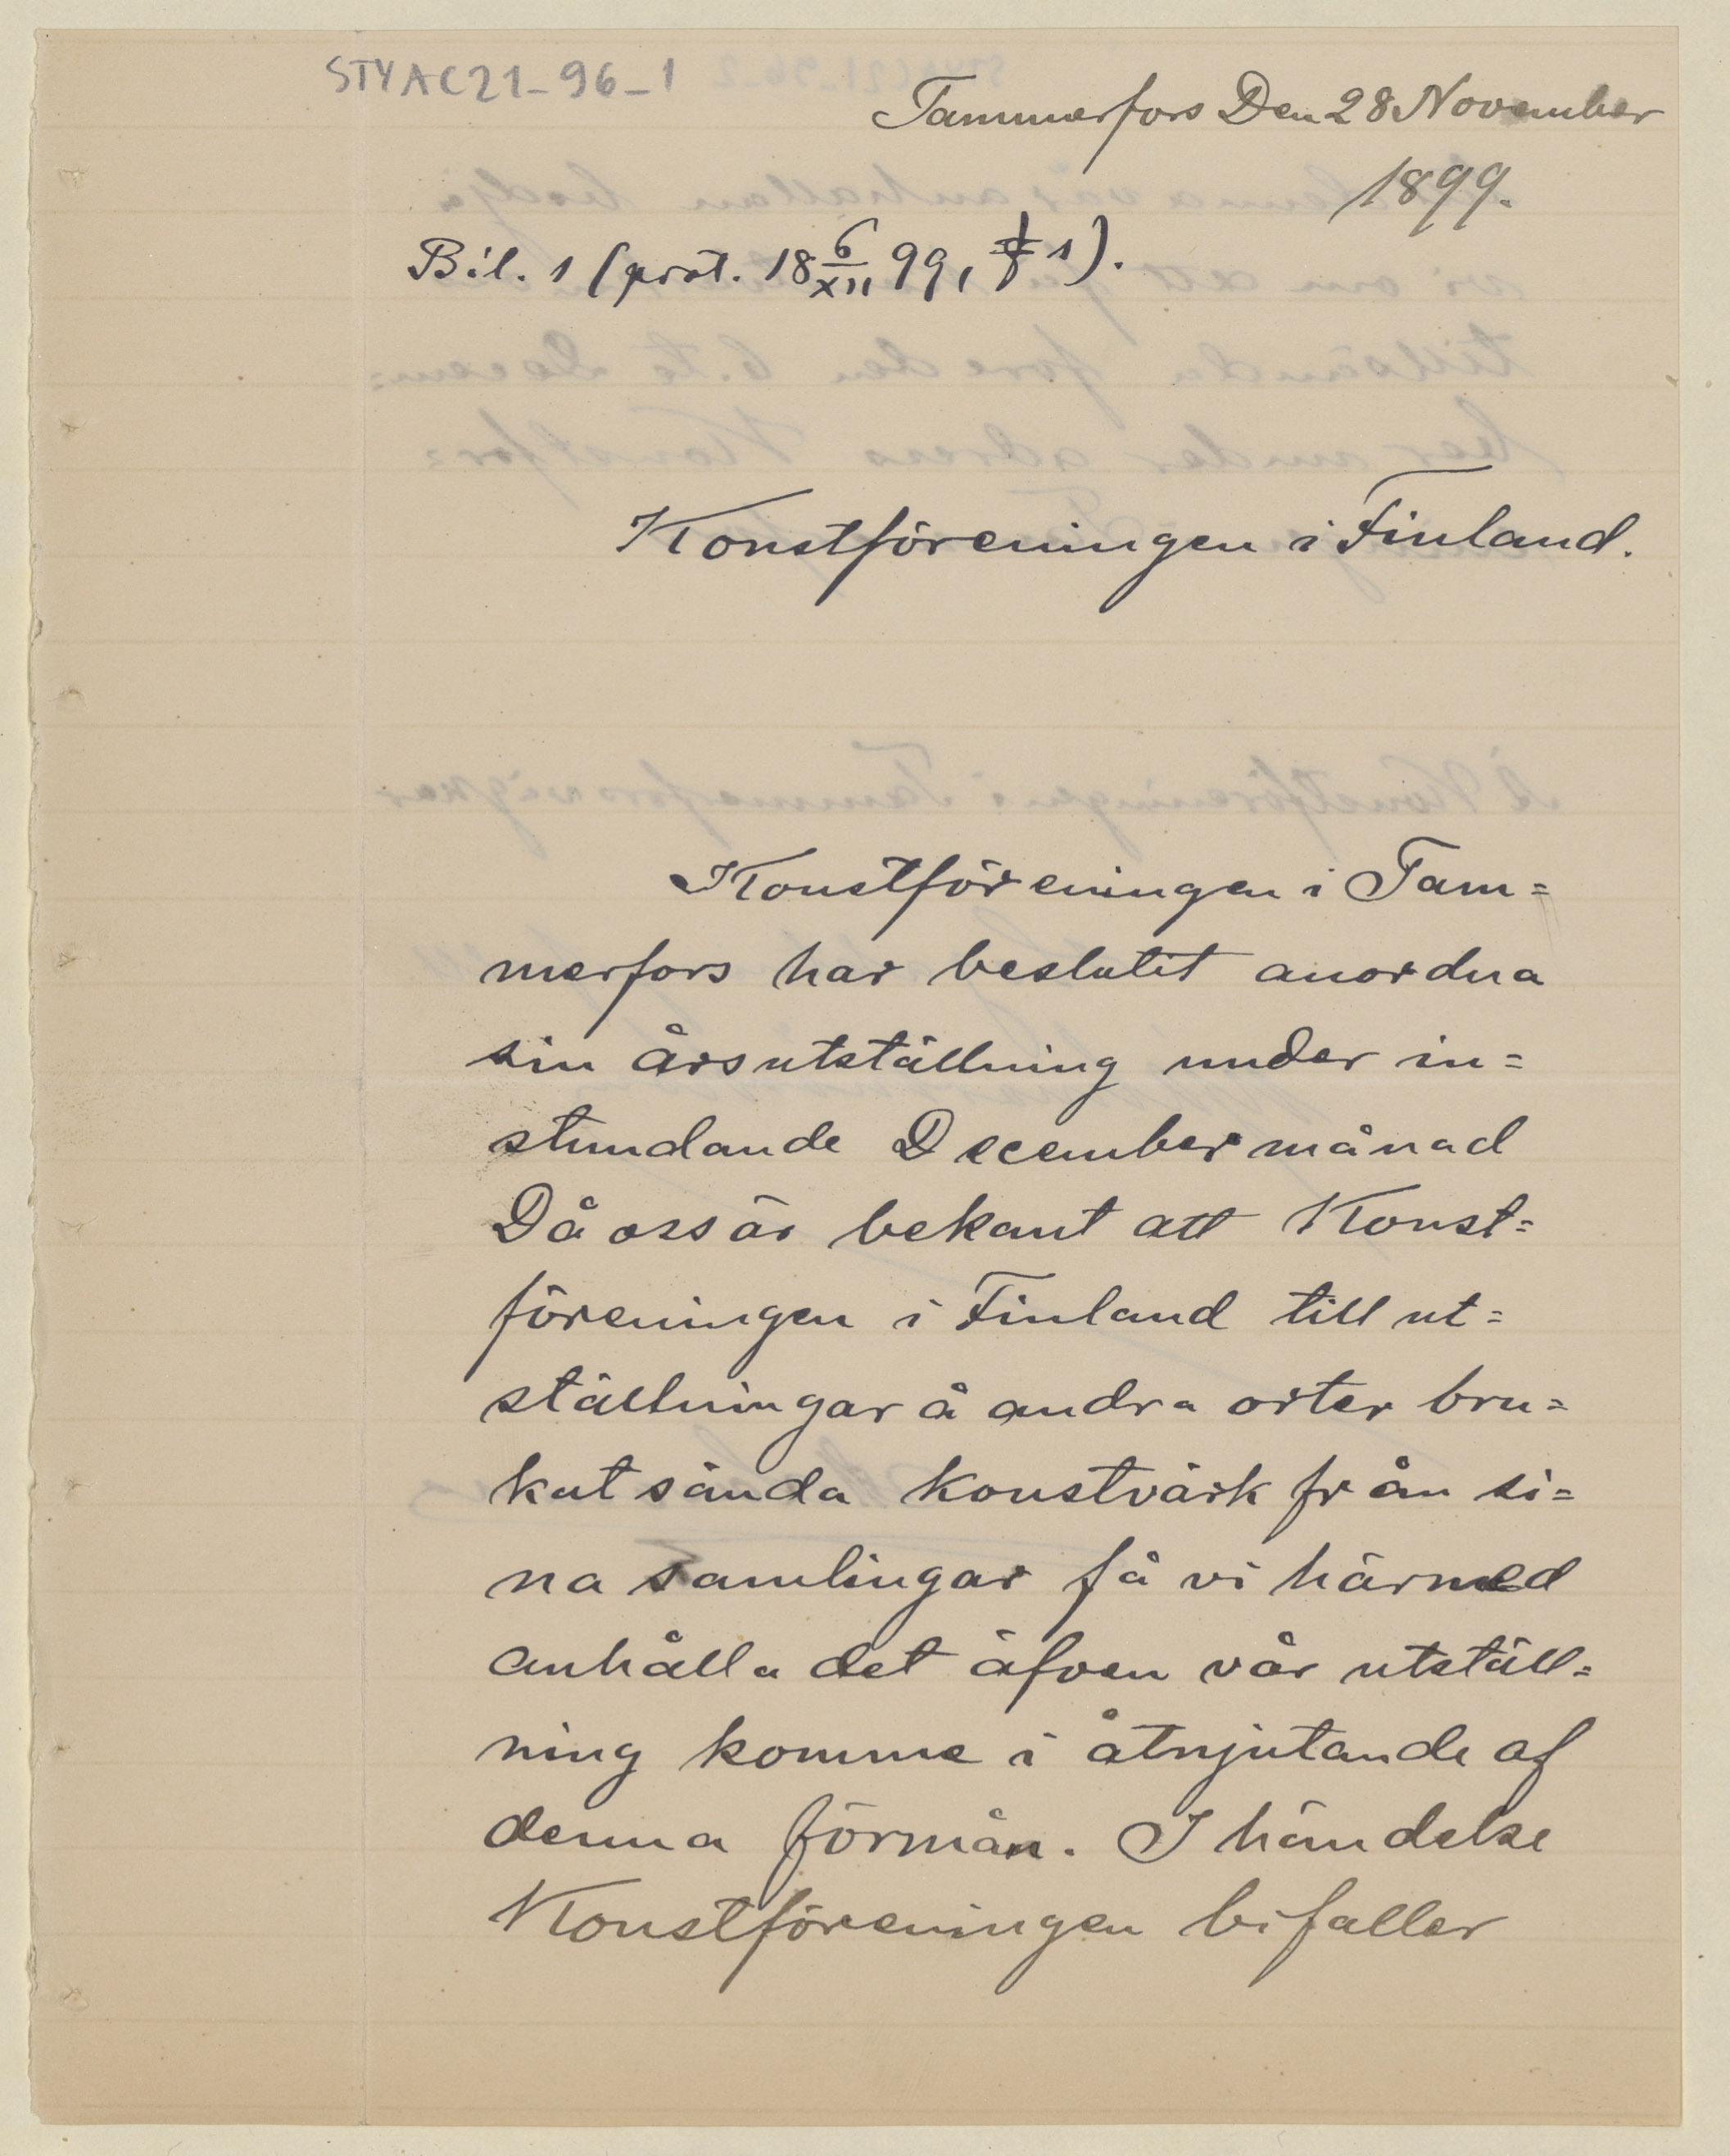 STYAC21_96_1
Tammerfors Den 28 November
1899.
Bil. 1 (prot. 18 6/XII 99, § 1).
Konstföreningen i Finland.
Konstföreningen i Tam=
merfors har beslutit anordna
sin årsutställning under in=
stundande December månad
Då oss är bekant att Konst=
föreningen i Finland till ut=
ställningar å andra orter bru=
kat sända konstvärk från si=
na samlingar få vi härmed
anhålla det äfven vår utställ=
ning komme i åtnjutande af
denna förmån. I händelse
Konstföreningen bifaller